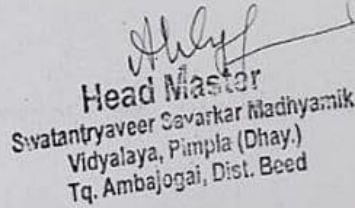 Head Master
Swatantryaveer Savarkar Madhyamik
Vidyalaya, Pimpla (Dhay.)
Tq. Ambajogai, Dist. Beed